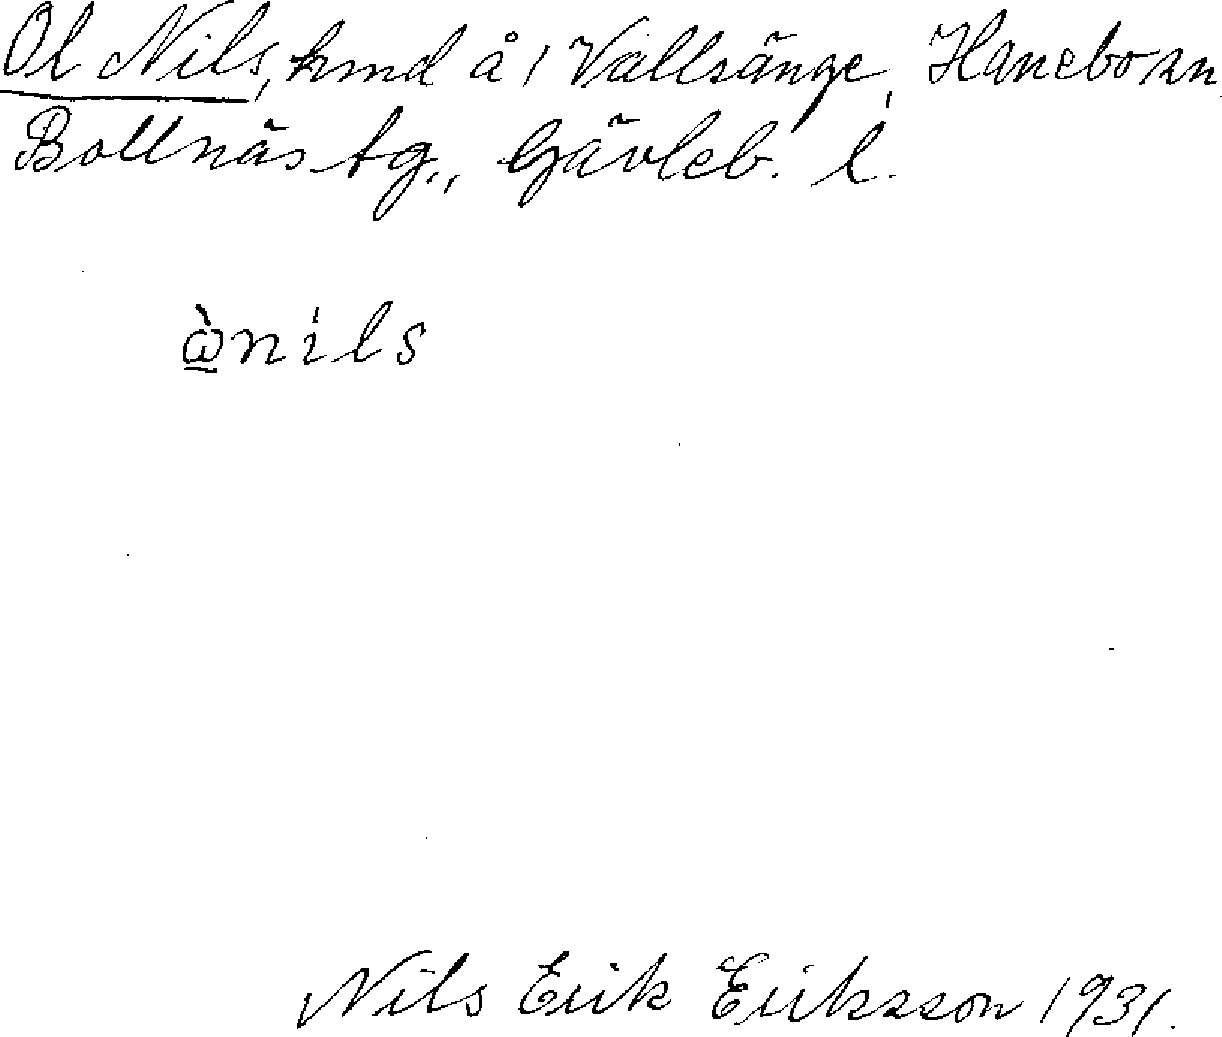 Ol Nils, hmd å 1 Vallsänge, Hanebo sn
Bollnäs tg., Gävleb. l.
ὼ̱nils
Nils Erik Eriksson 1931.